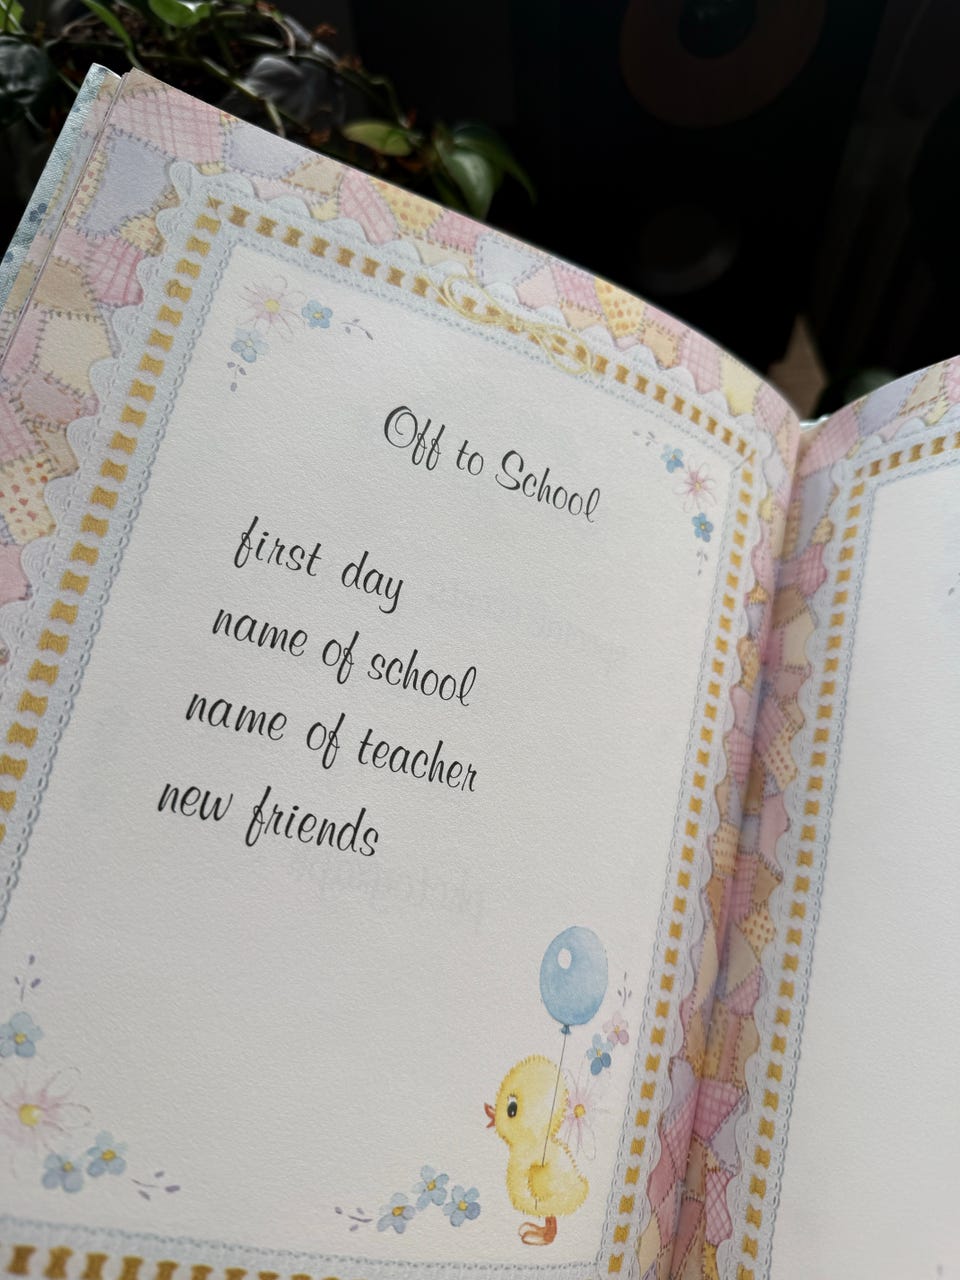 Off to School
first day
name of school
name of teacher
new friends